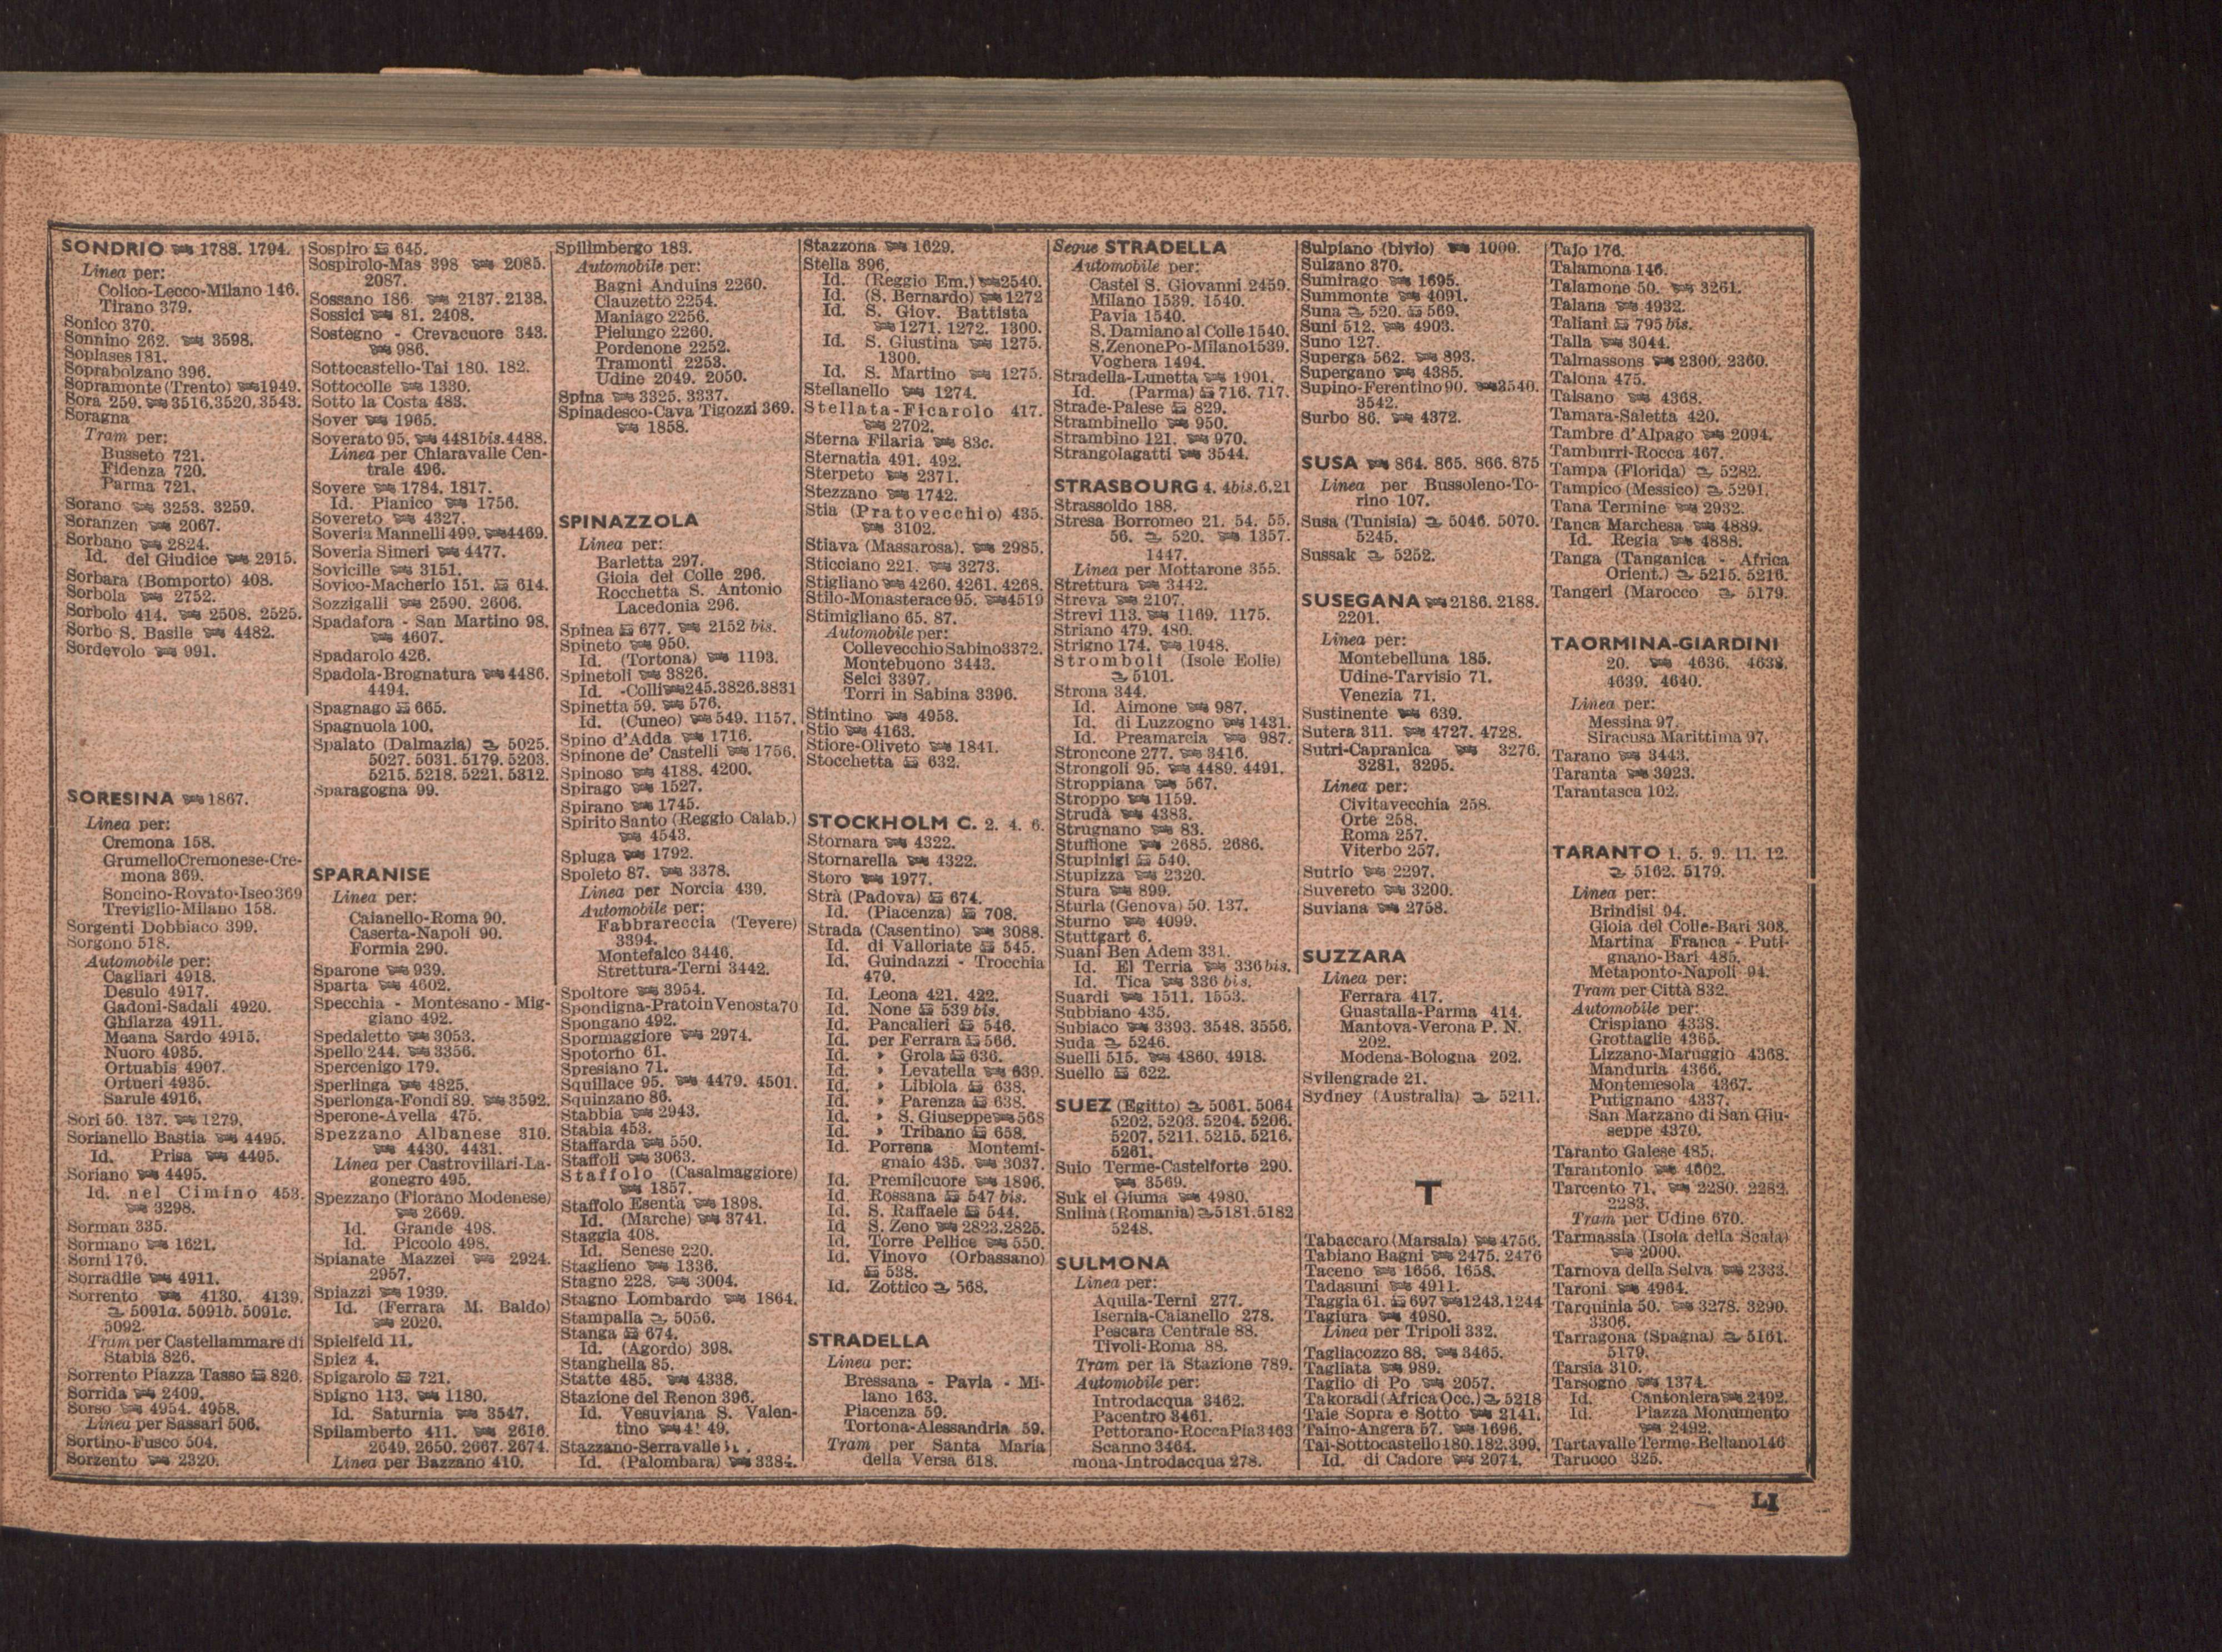 SONDRIO 1788. 1794.
Linea per:
Colico-Lecco-Milano 146.
Tirano 379.
Sonico 370.
Sonnino 262. 3598.
Soplases 181.
Soprabolzano 396.
Sopramonte (Trento) 1949.
Sora 259. 3516.3520.3543.
Soragna
Tram per:
Busseto 721.
Fidenza 720.
Parma 721.
Sorano 3253. 3259.
Soranzen 2067.
Sorbano 2824.
Id. del Giudice 2915.
Sorbara (Bomporto) 408.
Sorbola 2752.
Sorbolo 414. 2508. 2525.
Sorbo S. Basile 4482.
Sordevolo 991.
SORESINA 1867.
Linea per:
Cremona 158.
GrumelloCremonese-Cre-
mona 369.
Soncino-Rovato-Iseo 369
Treviglio-Milano 158.
Sorgenti Dobbiaco 399.
Sorgono 518.
Automobile per:
Cagliari 4918.
Desulo 4917.
Gadoni-Sadali 4920.
Ghilarza 4911.
Meana Sardo 4915.
Nuoro 4935.
Ortuabis 4907.
Ortueri 4935.
Sarule 4916.
Sori 50. 137. 1279.
Sorianello Bastia 4495.
Id. Prisa 4495.
Soriano 4495.
Id. nel Cimino 453.
3298.
Sorman 335.
Sormano 1621.
Sorni 176.
Sorradile 4911.
Sorrento 4130. 4139.
5091a. 5091b. 5091c.
5092.
Tram per Castellammare di
Stabia 826.
Sorrento Piazza Tasso 826.
Sorrida 2409.
Sorso 4954. 4958.
Linea per Sassari 506.
Sortino-Fusco 504.
Sorzento 2320.
Sospiro 645.
Sospirolo-Mas 398 2085.
2087.
Sossano 186. 2137. 2138.
Sossici 81. 2408.
Sostegno - Crevacuore 343.
986.
Sottocastello-Tai 180. 182.
Sottocolle 1330.
Sotto la Costa 483.
Sover 1965.
Soverato 95. 4481bis. 4488.
Linea per Chiaravalle Cen-
trale 496.
Sovere 1784. 1817.
Id. Pianico 1756.
Sovereto 4327.
Soveria Mannelli 499. 4469.
Soveria Simeri 4477.
Sovicille 3151.
Sovico-Macherio 151. 614.
Sozzigalli 2590. 2606.
Spadafora - San Martino 98.
4607.
Spadarolo 426.
Spadola-Brognatura 4486.
4494.
Spagnago 665.
Spagnuola 100.
Spalato (Dalmazia) 5025.
5027. 5031. 5179. 5203.
5215. 5218. 5221. 5312.
Sparagogna 99.
SPARANISE
Linea per:
Caianello-Roma 90.
Caserta-Napoli 90.
Formia 290.
Sparone 939.
Sparta 4602.
Specchia - Montesano - Mig-
giano 492.
Spedaletto 3053.
Spello 244. 3356.
Spercenigo 179.
Sperlinga 4825.
Sperlonga-Fondi 89. 3592.
Sperone-Avella 475.
Spezzano Albanese 310.
4430. 4431.
Linea per Castrovillari-La-
gonegro 495.
Spezzano (Fiorano Modenese)
2669.
Id. Grande 498.
Id. Piccolo 498.
Spianate Mazzei 2924.
2957.
Spiazzi 1939.
Id. (Ferrara M. Baldo)
2020.
Spielfeld 11.
Spiez 4.
Spigarolo 721.
Spigno 113. 1180.
Id. Saturnia 3547.
Spilamberto 411. 2616.
2649. 2650. 2667. 2674.
Linea per Bazzano 410.
Spilimbergo 183.
Automobile per:
Bagni Anduins 2260.
Clauzetto 2254.
Maniago 2256.
Pielungo 2260.
Pordenone 2252.
Tramonti 2253.
Udine 2049. 2050.
Spina 3325. 3337.
Spinadesco-Cava Tigozzi 369.
1858.
SPINAZZOLA
Linea per:
Barletta 297.
Gioia del Colle 296.
Rocchetta S. Antonio
Lacedonia 296.
Spinea 677. 2152 bis.
Spineto 950.
Id. (Tortona) 1193.
Spinetoli 3826.
Id. -Colli 245.3826.3831
Spinetta 59. 576.
Id. (Cuneo) 549. 1157.
Spino d'Adda 1716.
Spinone de' Castelli 1756.
Spinoso 4188. 4200.
Spirago 1527.
Spirano 1745.
Spirito Santo (Reggio Calab.)
4543.
Spluga 1792.
Spoleto 87. 3378.
Linea per Norcia 439.
Automobile per:
Fabbrareccia (Tevere)
3394.
Montefalco 3446.
Strettura-Terni 3442.
Spoltore 3954.
Spondigna-PratoinVenosta70
Spongano 492.
Spormaggiore 2974.
Spotorno 61.
Spresiano 71.
Squillace 95. 4479. 4501.
Squinzano 86.
Stabbia 2943.
Stabia 453.
Staffarda 550.
Staffoli 3063.
Staffolo (Casalmaggiore)
1857.
Staffolo Esenta 1898.
Id. (Marche) 3741.
Staggia 408.
Id. Senese 220.
Staglieno 1336.
Stagno 228. 3004.
Stagno Lombardo 1864.
Stampalia 5056.
Stanga 674.
Id. (Agordo) 398.
Stanghella 85.
Statte 485. 4338.
Stazione del Renon 396.
Id. Vesuviana S. Valen-
tino 49.
Stazzano-Serravalle
Id. (Palombara) 3384.
Stazzona 1629.
Stella 396.
Id. (Reggio Em.) 2540.
Id. (S. Bernardo) 1272
Id. S. Giov. Battista
1271. 1272. 1300.
Id. S. Giustina 1275.
1300.
Id. S. Martino 1275.
Stellanello 1274.
Stellata-Ficarolo 417.
2702.
Sterna Filaria 83c.
Sternatia 491. 492.
Sterpeto 2371.
Stezzano 1742.
Stia (Pratovecchio) 435.
3102.
Stiava (Massarosa). 2985.
Sticciano 221. 3273.
Stigliano 4260. 4261. 4268.
Stilo-Monasterace 95. 4519
Stimigliano 65. 87.
Automobile per:
Collevecchio Sabino3372.
Montebuono 3443.
Selci 3397.
Torri in Sabina 3396.
Stintino 4953.
Stio 4163.
Stiore-Oliveto 1841.
Stocchetta 632.
STOCKHOLM C. 2. 4. 6.
Stornara 4322.
Stornarella 4322.
Storo 1977.
Strà (Padova) 674.
Id. (Piacenza) 708.
Strada (Casentino) 3088.
Id. di Valloriate 545.
Id. Guindazzi - Trocchia
479.
Id. Leona 421. 422.
Id. None 539 bis.
Id. Pancalieri 546.
Id. per Ferrara 566.
Id. » Grola 636.
Id. » Levatella 639.
Id. » Libiola 638.
Id. » Parenza 638.
Id. » S. Giuseppe 568
Id. » Tribano 658.
Id. Porrena Montemi-
gnaio 435. 3037.
Id. Premilcuore 1896.
Id. Rossana 547 bis.
Id. S. Raffaele 544.
Id. S. Zeno 2823.2825.
Id. Torre Pellice 550.
Id. Vinovo (Orbassano)
538.
Id. Zottico 568.
STRADELLA
Linea per:
Bressana - Pavia - Mi-
lano 163.
Piacenza 59.
Tortona-Alessandria 59.
Tram per Santa Maria
della Versa 618.
Segue STRADELLA
Automobile per:
Castel S. Giovanni 2459.
Milano 1539. 1540.
Pavia 1540.
S. Damiano al Colle 1540.
S.ZenonePo-Milano1539.
Voghera 1494.
Stradella-Lunetta 1901.
Id. (Parma) 716. 717.
Strade-Palese 829.
Strambinello 950.
Strambino 121. 970.
Strangolagatti 3544.
STRASBOURG 4. 4bis.6.21
Strassoldo 188.
Stresa Borromeo 21. 54. 55.
56. 520. 1357.
1447.
Linea per Mottarone 355.
Strettura 3442.
Streva 2107.
Strevi 113. 1169. 1175.
Striano 479. 480.
Strigno 174. 1948.
Stromboli (Isole Eolie)
5101.
Strona 344.
Id. Aimone 987.
Id. di Luzzogno 1431.
Id. Preamarcia 987.
Stroncone 277. 3416.
Strongoli 95. 4489. 4491.
Stroppiana 567.
Stroppo 1159.
Strudà 4383.
Strugnano 83.
Stuffione 2685. 2686.
Stupinigi 540.
Stupizza 2320.
Stura 899.
Sturla (Genova) 50. 137.
Sturno 4099.
Stuttgart 6.
Suani Ben Adem 331.
Id. El Terria 336bis.
Id. Tica 336 bis.
Suardi 1511. 1553.
Subbiano 435.
Subiaco 3393. 3548. 3556.
Suda 5246.
Suelli 515. 4860. 4918.
Suello 622.
SUEZ (Egitto) 5061. 5064
5202. 5203. 5204. 5206.
5207. 5211. 5215. 5216.
5261.
Suio Terme-Castelforte 290.
3569.
Suk el Giuma 4980.
Sulinà (Romania) 5181.5182
5248.
SULMONA
Linea per:
Aquila-Terni 277.
Isernia-Caianello 278.
Pescara Centrale 88.
Tivoli-Roma 88.
Tram per la Stazione 789.
Automobile per:
Introdacqua 3462.
Pacentro 3461.
Pettorano-RoccaPia3463
Scanno 3464.
mona-Introdacqua 278.
Sulpiano (bivio) 1009.
Sulzano 370.
Sumirago 1695.
Summonte 4091.
Suna 520. 569.
Suni 512. 4903.
Suno 127.
Superga 562. 893.
Supergano 4385.
Supino-Ferentino 90. 3540.
3542.
Surbo 86. 4372.
SUSA 864. 865. 866. 875
Linea per Bussoleno-To-
rino 107.
Susa (Tunisia) 5046. 5070.
5245.
Sussak 5252.
SUSEGANA 2186. 2188.
2201.
Linea per:
Montebelluna 185.
Udine-Tarvisio 71.
Venezia 71.
Sustinente 639.
Sutera 311. 4727. 4728.
Sutri-Capranica 3276.
3281. 3295.
Linea per:
Civitavecchia 258.
Orte 258.
Roma 257.
Viterbo 257.
Sutrio 2297.
Suvereto 3200.
Suviana 2758.
SUZZARA
Linea per:
Ferrara 417.
Guastalla-Parma 414.
Mantova-Verona P. N.
202.
Modena-Bologna 202.
Svilengrade 21.
Sydney (Australia) 5211.
T
Tabaccaro (Marsala) 4756.
Tabiano Bagni 2475. 2476
Taceno 1656. 1658.
Tadasuni 4911.
Taggia 61. 697 1243.1244
Tagiura 4980.
Linea per Tripoli 332.
Tagliacozzo 88. 3465.
Tagliata 989.
Taglio di Po 2057.
Takoradi (Africa Occ.) 5218
Taie Sopra e Sotto 2141.
Taino-Angera 57. 1696.
Tai-Sottocastello180.182.399.
Id. di Cadore 2074.
Tajo 176.
Talamona 146.
Talamone 50. 3261.
Talana 4932.
Taliani 795 bis.
Talla 3044.
Talmassons 2300. 2360.
Talona 475.
Talsano 4368.
Tamara-Saletta 420.
Tambre d'Alpago 2094.
Tamburri-Rocca 467.
Tampa (Florida) 5282.
Tampico (Messico) 5291.
Tana Termine 2932.
Tanca Marchesa 4889.
Id. Regia 4888.
Tanga (Tanganica - Africa
Orient.) 5215. 5216.
Tangeri (Marocco 5179.
TAORMINA-GIARDINI
20. 4636. 4638.
4639. 4640.
Linea per:
Messina 97.
Siracusa Marittima 97.
Tarano 3443.
Taranta 3923.
Tarantasca 102.
TARANTO 1. 5. 9. 11. 12.
5162. 5179.
Linea per:
Brindisi 94.
Gioia del Colle-Bari 308.
Martina Franca - Puti-
gnano-Bari 485.
Metaponto-Napoli 94.
Tram per Città 832.
Automobile per:
Crispiano 4338.
Grottaglie 4365.
Lizzano-Maruggio 4368.
Manduria 4366.
Montemesola 4367.
Putignano 4337.
San Marzano di San Giu-
seppe 4370.
Taranto Galese 485.
Tarantonio 4602.
Tarcento 71. 2280. 2282.
2283.
Tram per Udine 670.
Tarmassia (Isola della Scala)
2000.
Tarnova della Selva 2333.
Taroni 4964.
Tarquinia 50. 3278. 3290.
3306.
Tarragona (Spagna) 5161.
5179.
Tarsia 310.
Tarsogno 1374.
Id. Cantoniera 2492.
Id. Piazza Monumento
2492.
Tartavalle Terme-Bellano146
Tarucco 325.
LI